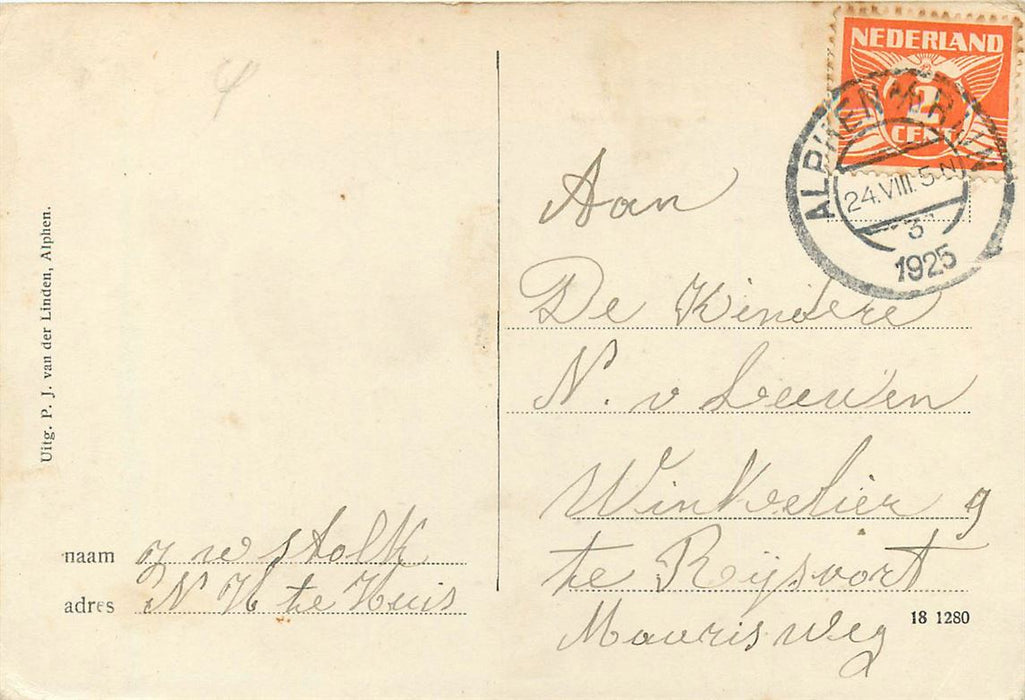 Uitg. P. J. van der Linden, Alphen.
NEDERLAND
2
CENT
ALPHEN A/D RIJN
24.VIII.5-N
3
1925
Aan
De Kindere
N. v Leeuwen
Winkelier
te Rijsvort
Maurisweg
naam J w stolk
adres N H te Huis
18 1280